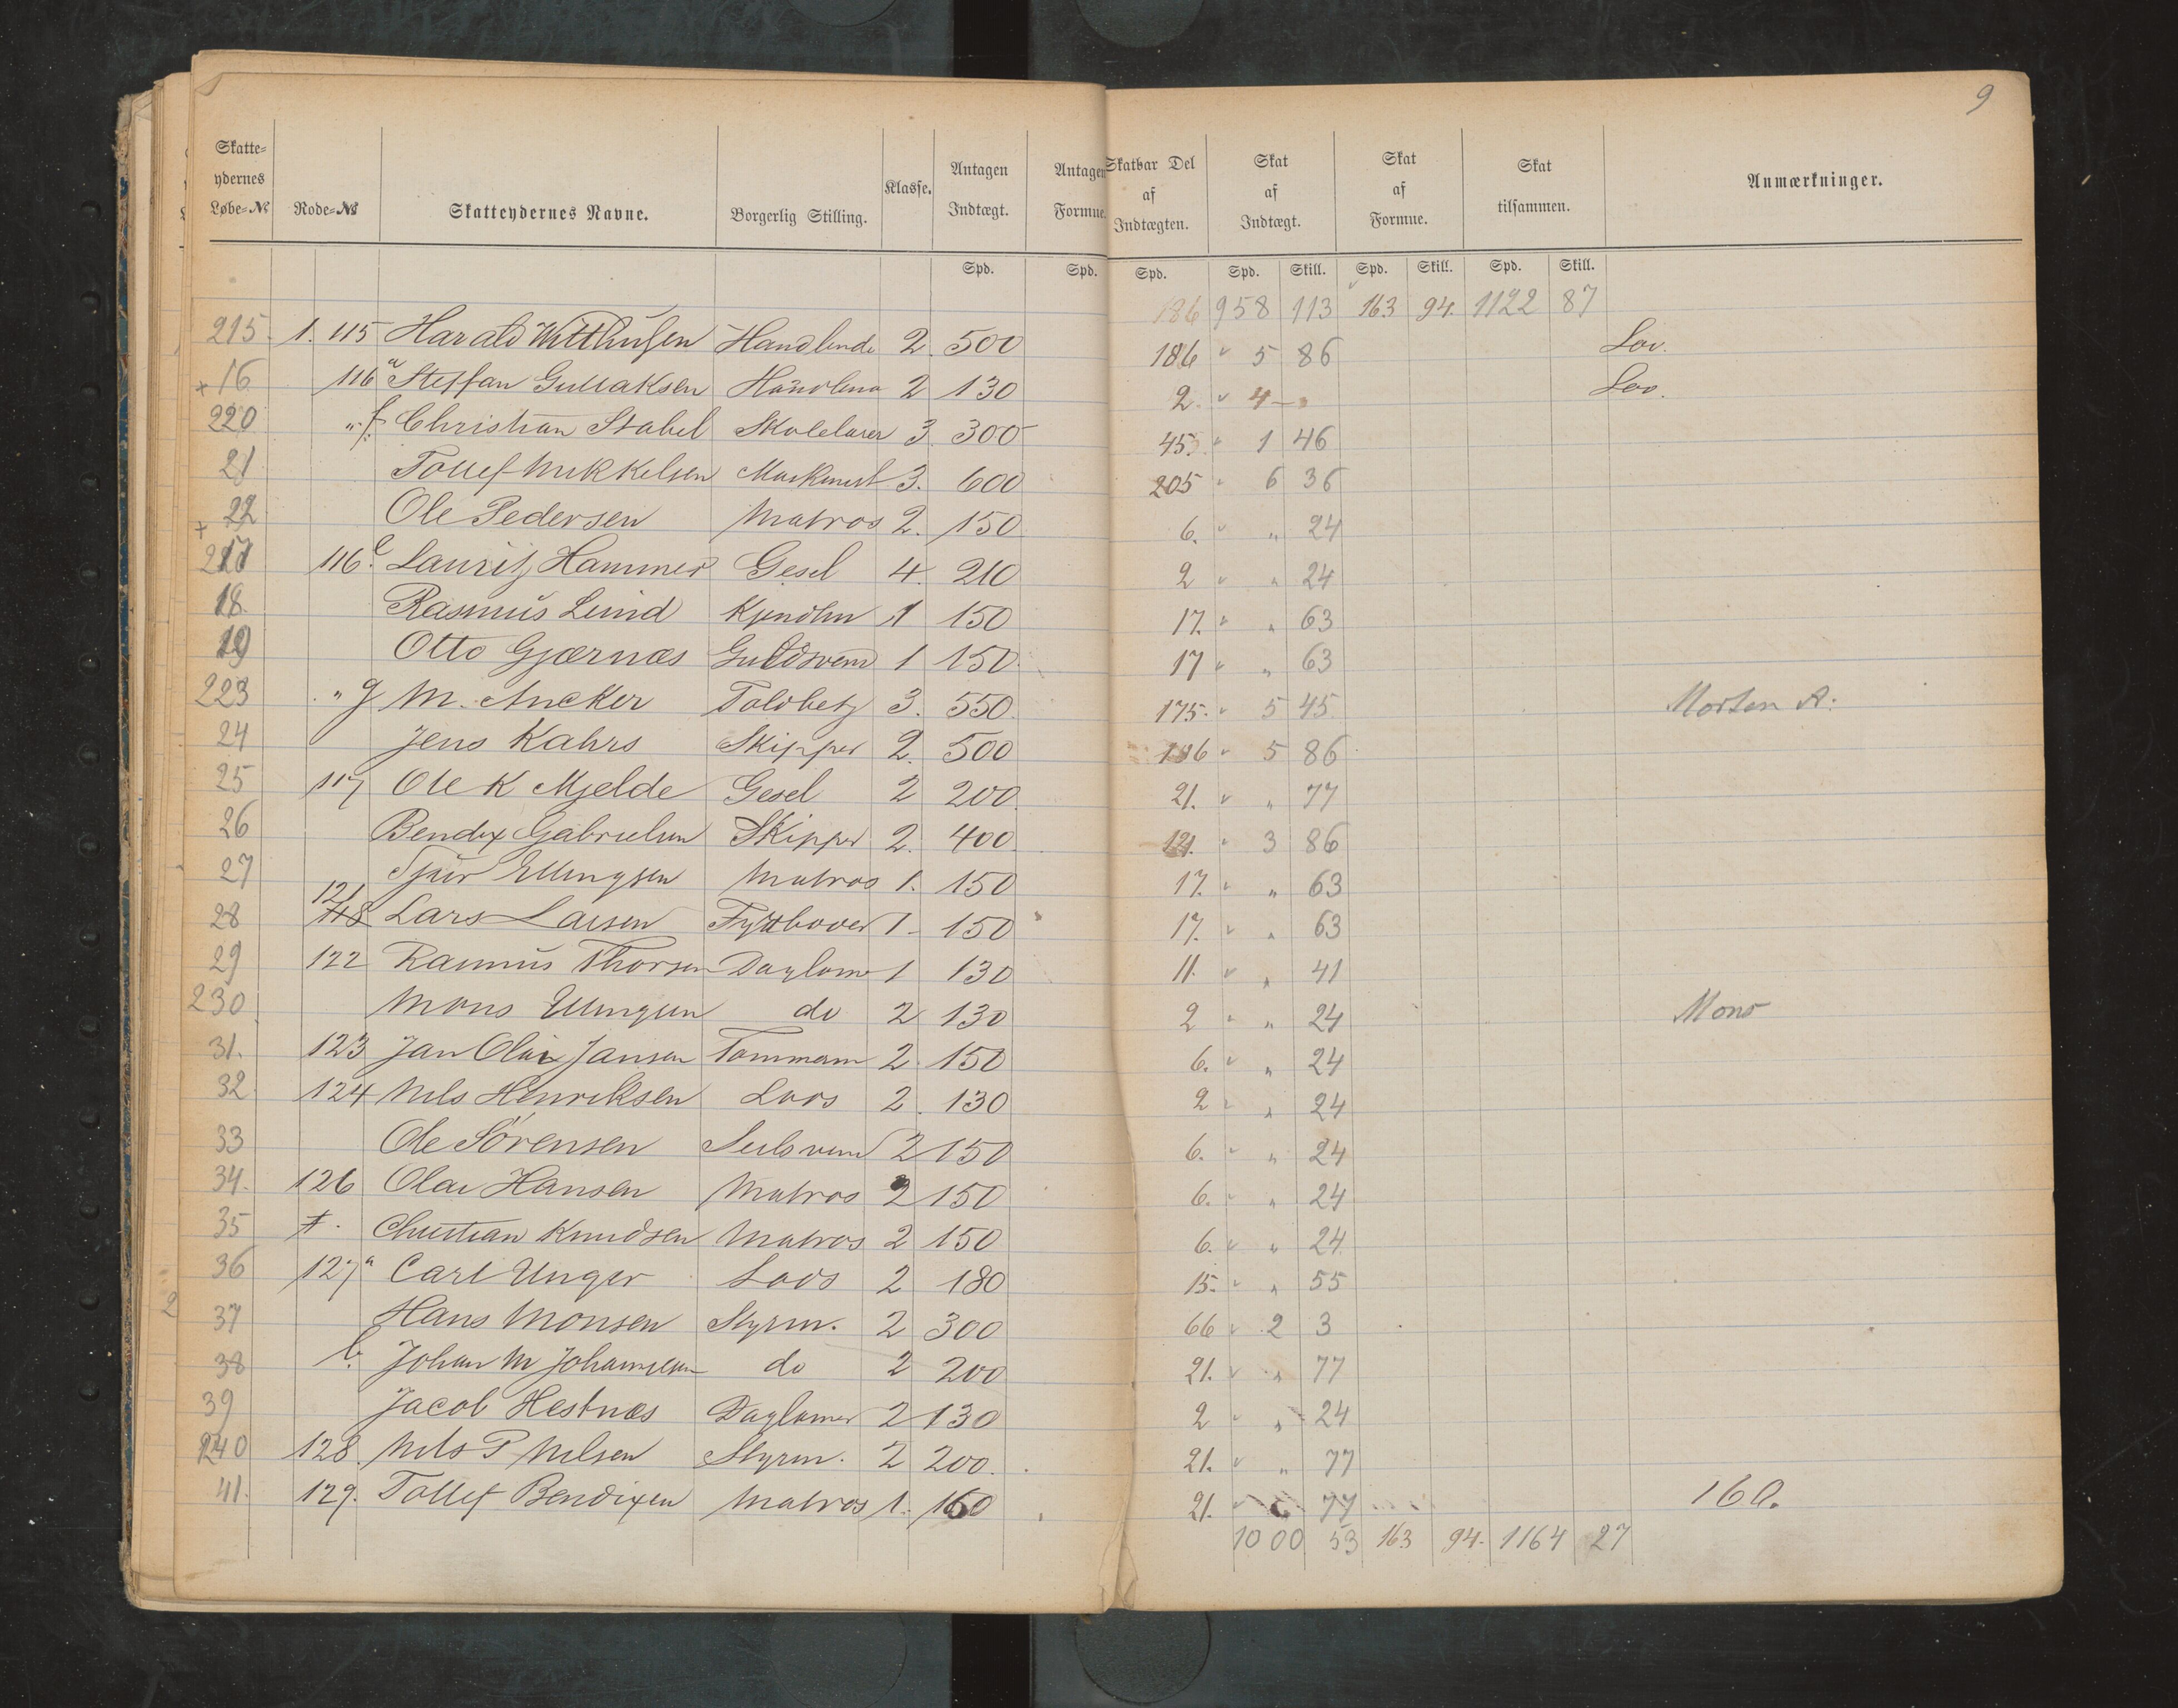 9
Skatteydernes Løbe-№ Rode-№ Skatteydernes Navne. Borgerlig Stilling. Klasse. Antagen Indtægt. Antagen Formue. Skatbar Del af Indtægten. Skat af Indtægt. Skat af Formue. Skat tilsammen. Anmærkninger.
Spd. Spd. Spd. Spd. Skill. Spd. Skill. Spd. Skill.
186 958 113 163 94. 1122 87
215. 1. 115 Harald Witthusen Handlende 2. 500 186 " 5 86 Lov.
+ 16 116 a Steffan Gullaksen 2 130 2. " 4 - Lov.
220 " f. Christian Stabel Skolelærer 3. 300 45. " 1 46
21 Tollef Mikkelsen Maskinist 3. 600 205 " 6 36
+ 22 Ole Pedersen Matros 2. 150 6. " " 24
217 116 e Lauritz Hammer Gesel 4. 210 2 " " 24
18. Rasmus Lund 1 150 17. " " 63
19 Otto Gjærnæs Guldsvend 1 150. 17 " " 63
223 " g M. Ancker Toldbetj 3. 550. 175. " 5 45. Morten A:
24 Jens Kahrs Skipper 2. 500 186 " 5 86
25 117 Ole K Mjelde Gesel 2 200. 21. " " 77
26 Bendix Gabrielsen Skipper 2. 400. 121. " 3 86
27 Sjur Ellingsen Matros 1. 150 17. " " 63
28 121 118 Lars Larsen 1 - 150 17. " " 63
29 122 Rasmus Thorsen Dagløner 1 130 11. " " 41
230 Mons Ellingsen do 2 130 2 " " 24 Mons
31. 123 Jan Olai Jansen Tømmerm 2. 150 6. " " 24
32 124 Nils Henriksen Lods 2. 130 2 " " 24
33 Ole Sörensen Seilsvend 2 150 6. " " 24
34. 126 Olai Hansen Matros 2 150 6. " " 24
35 Christian Knudsen Matros 2 150 6. " " 24
36 127 a Carl Unger Lods 2 180 15. " " 55
37 Hans Monsen Styrm. 2 300 66 " 2 3
38 b. Johan M Johannesen do 2 200 21. " " 77
39 Jacob Hestnæs Dagløner 2 130 2 " " 24
240 128. Nils P Nilsen Styrm. 2 200. 21. " " 77
41. 129. Tollef Bendixen Matros 1. 160 21. " 77 160.
1000 53 163 94. 1164 27